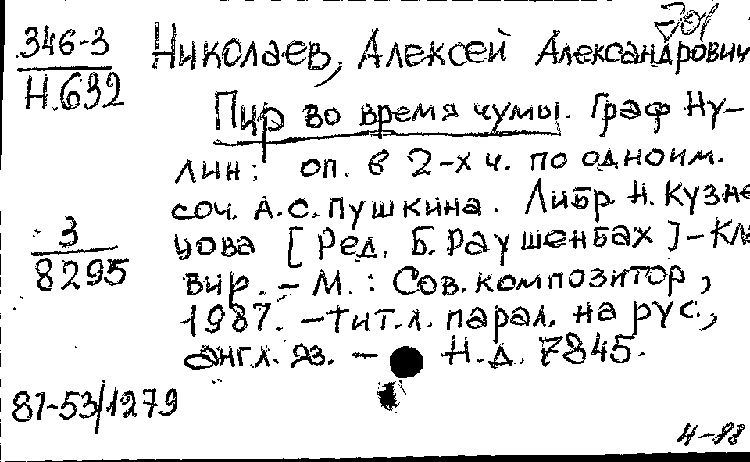 701
346-3
Н.632
Николаев, Алексей Александрович
Пир во время чумы. Граф Ну-
лин: оп. в 2-х ч. по одноим.
соч. А.С. Пушкина. Либр. Н. Кузне
3
8295
цова [Ред. Б. Раушенбах]-Кла
вир. – М.: Сов. композитор,
1987. – Тит.л. парал. на рус.,
англ. яз. – Н.д. 7845.
87-53/1279
4-88